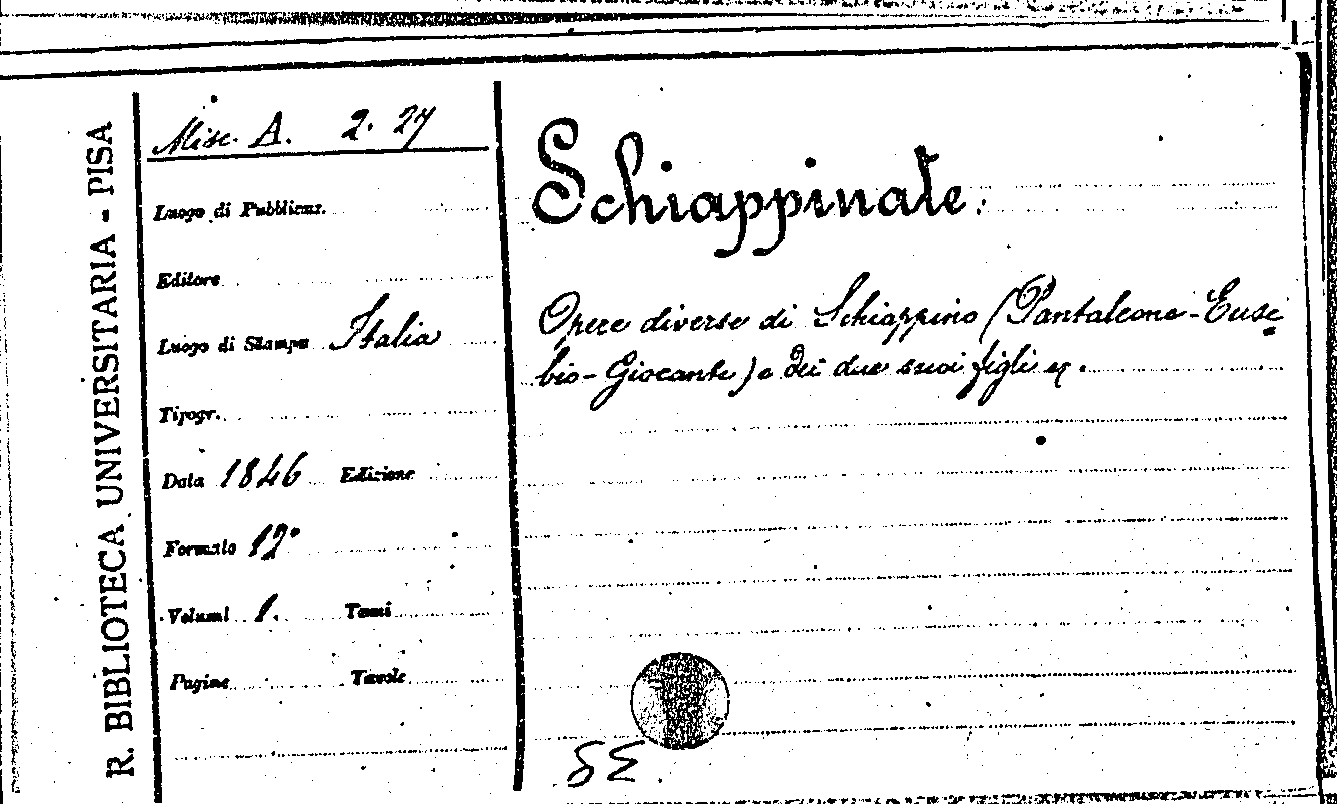 R. BIBLIOTECA UNIVERSITARIA - PISA
Misc. A. 2. 27
Luogo di Pubblicaz.
Editore
Luogo di Stampa Italia
Tipogr.
Data 1846 Edizione
Formato 12°
Volumi 1. Tomi
Pagine Tavole
Schiappinate.
Opere diverse di Schiappino (Pantaleone-Euse
bio-Giocante) e dei due suoi figli